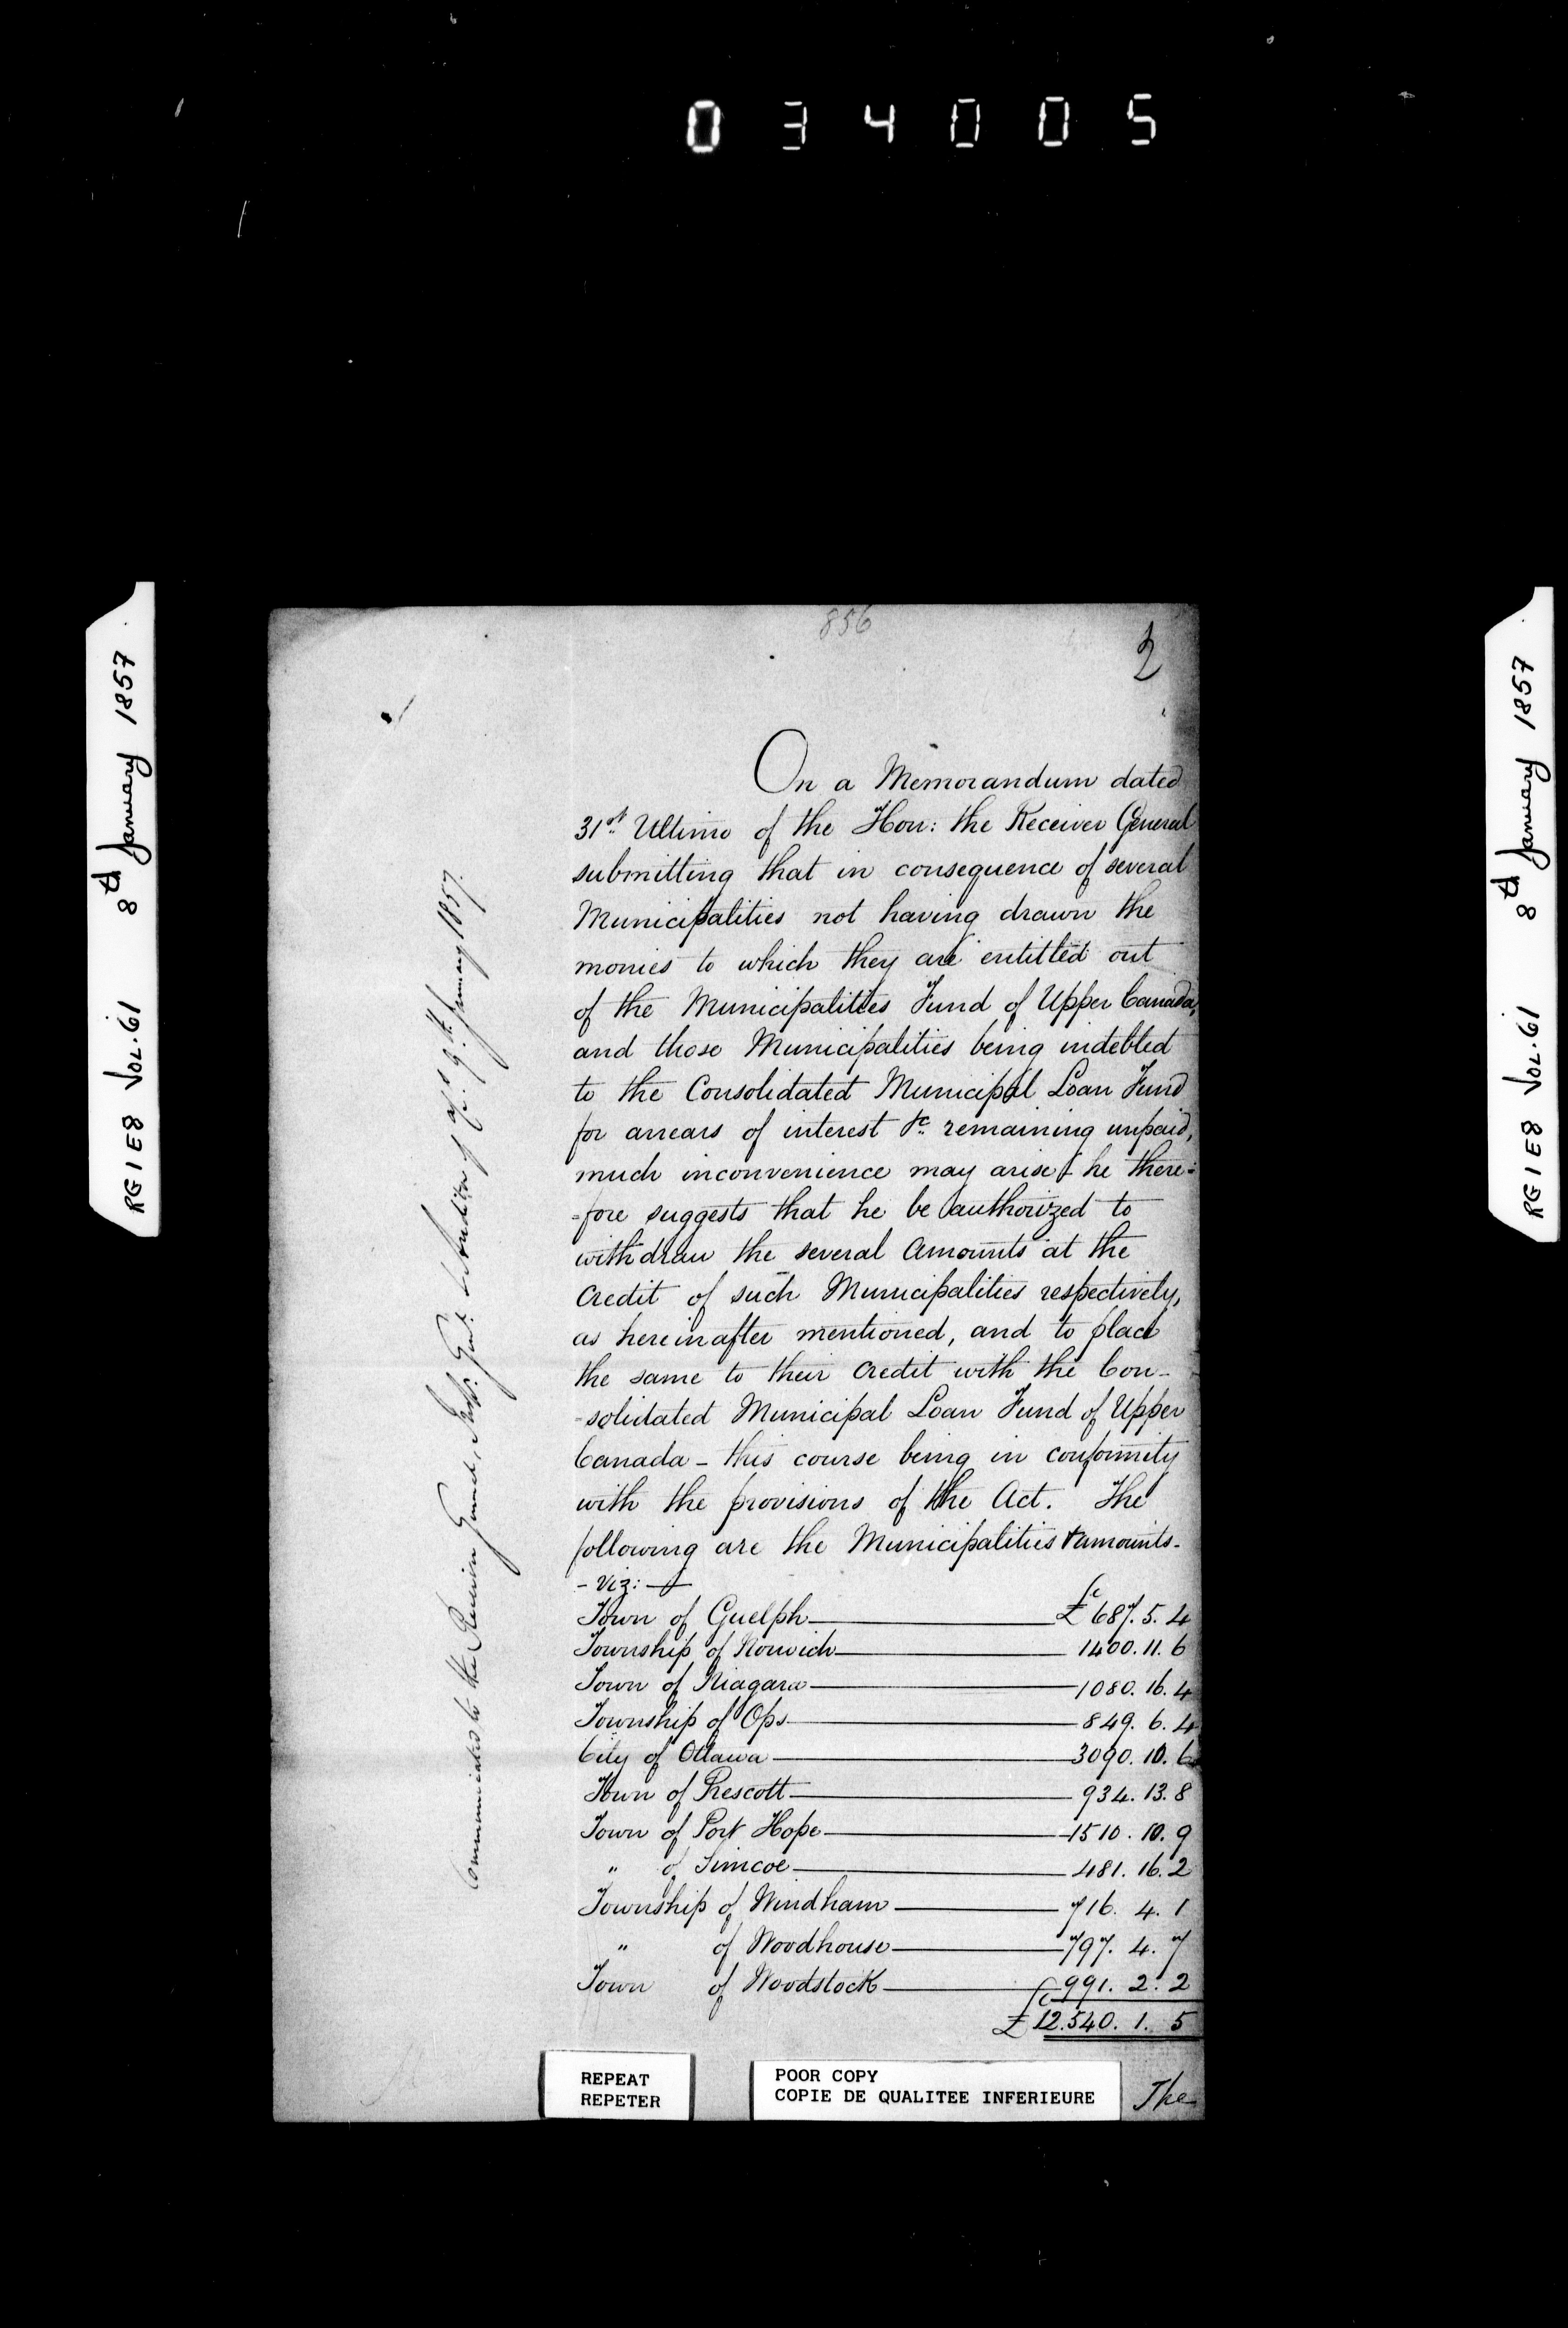 0 3 4 0 0 5
RG1E8 VOL.61 8th January 1857
856
2
On a Memorandum dated
31st Ultimo of the Hon: the Receiver General
submitting that in consequence of several
Municipalities not having drawn the
monies to which they are entitled out
of the Municipalities Fund of Upper Canada,
and those Municipalities being indebted
to the Consolidated Municipal Loan Fund
for arrears of interest &c. remaining unpaid,
much inconvenience may arise & he there=
=fore suggests that he be authorized to
withdraw the several amounts at the
Credit of such Municipalities respectively,
as hereinafter mentioned, and to place
the same to their Credit with the Con-
=solidated Municipal Loan Fund of Upper
Canada - this course being in conformity
with the provisions of the Act. The
following are the Municipalities & amounts.
- Viz: -
Town of Guelph £687. 5. 4
Township of Norwich 1400. 11. 6
Town of Niagara 1080. 16. 4
Township of Ops 849. 6. 4
City of Ottawa 3090. 10. 6
Town of Prescott 934. 13. 8
Town of Port Hope 1510. 10. 9
" of Simcoe 481. 16. 2
Township of Windham 716. 4. 1
" of Woodhouse 797. 4. 7
Town of Woodstock 991. 2. 2
£12.540. 1. 5
The
Communicated to the Receiver General, Insp. Genl. & Auditor of Acts. 9th January 1857.
REPEAT
REPETER
POOR COPY
COPIE DE QUALITEE INFERIEURE
RG1E8 VOL.61 8th January 1857